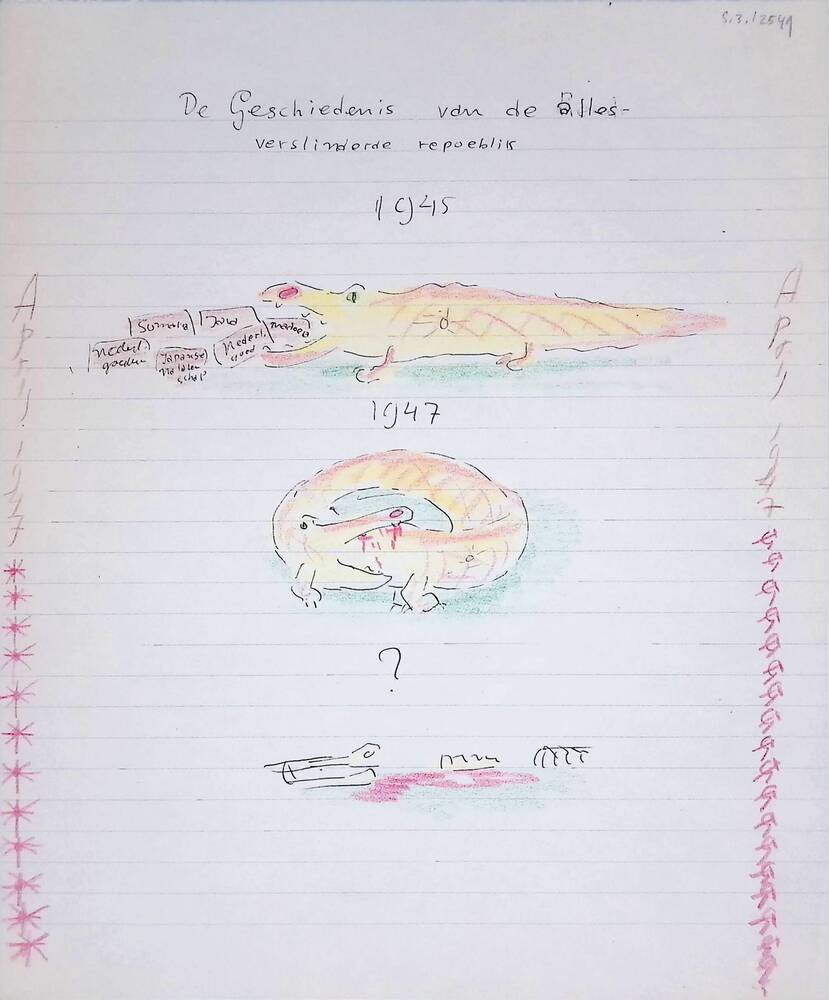 De Geschiedenis van de alles-
verslindende repoeblik
1945
Sumatra
Java
Madoera
Nederl.
goederen
Japanse
nalaten
schap
Nederl.
goed
1947
?
April 1947
April 1947